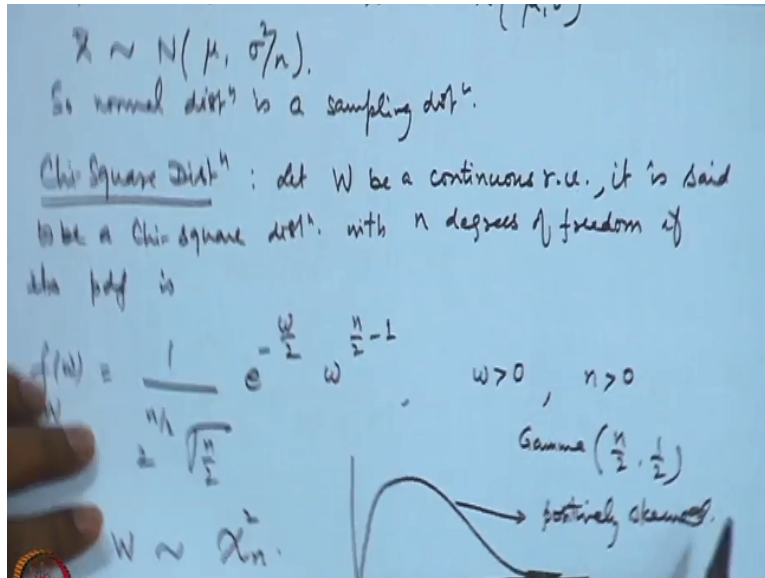 N(μ, σ)
X̄ ~ N(μ, σ²/n).
So normal distⁿ is a sampling distⁿ.
Chi-Square Distⁿ : Let W be a continuous r.v., it is said
to be a Chi-square distⁿ. with n degrees of freedom if
the pdf is
f_W(w) = 1 / (2^{n/2} Γ(n/2)) e^{-w/2} w^{n/2 - 1} , w>0, n>0
Gamma (n/2, 1/2)
→ positively skewed.
W ~ χ²_n.